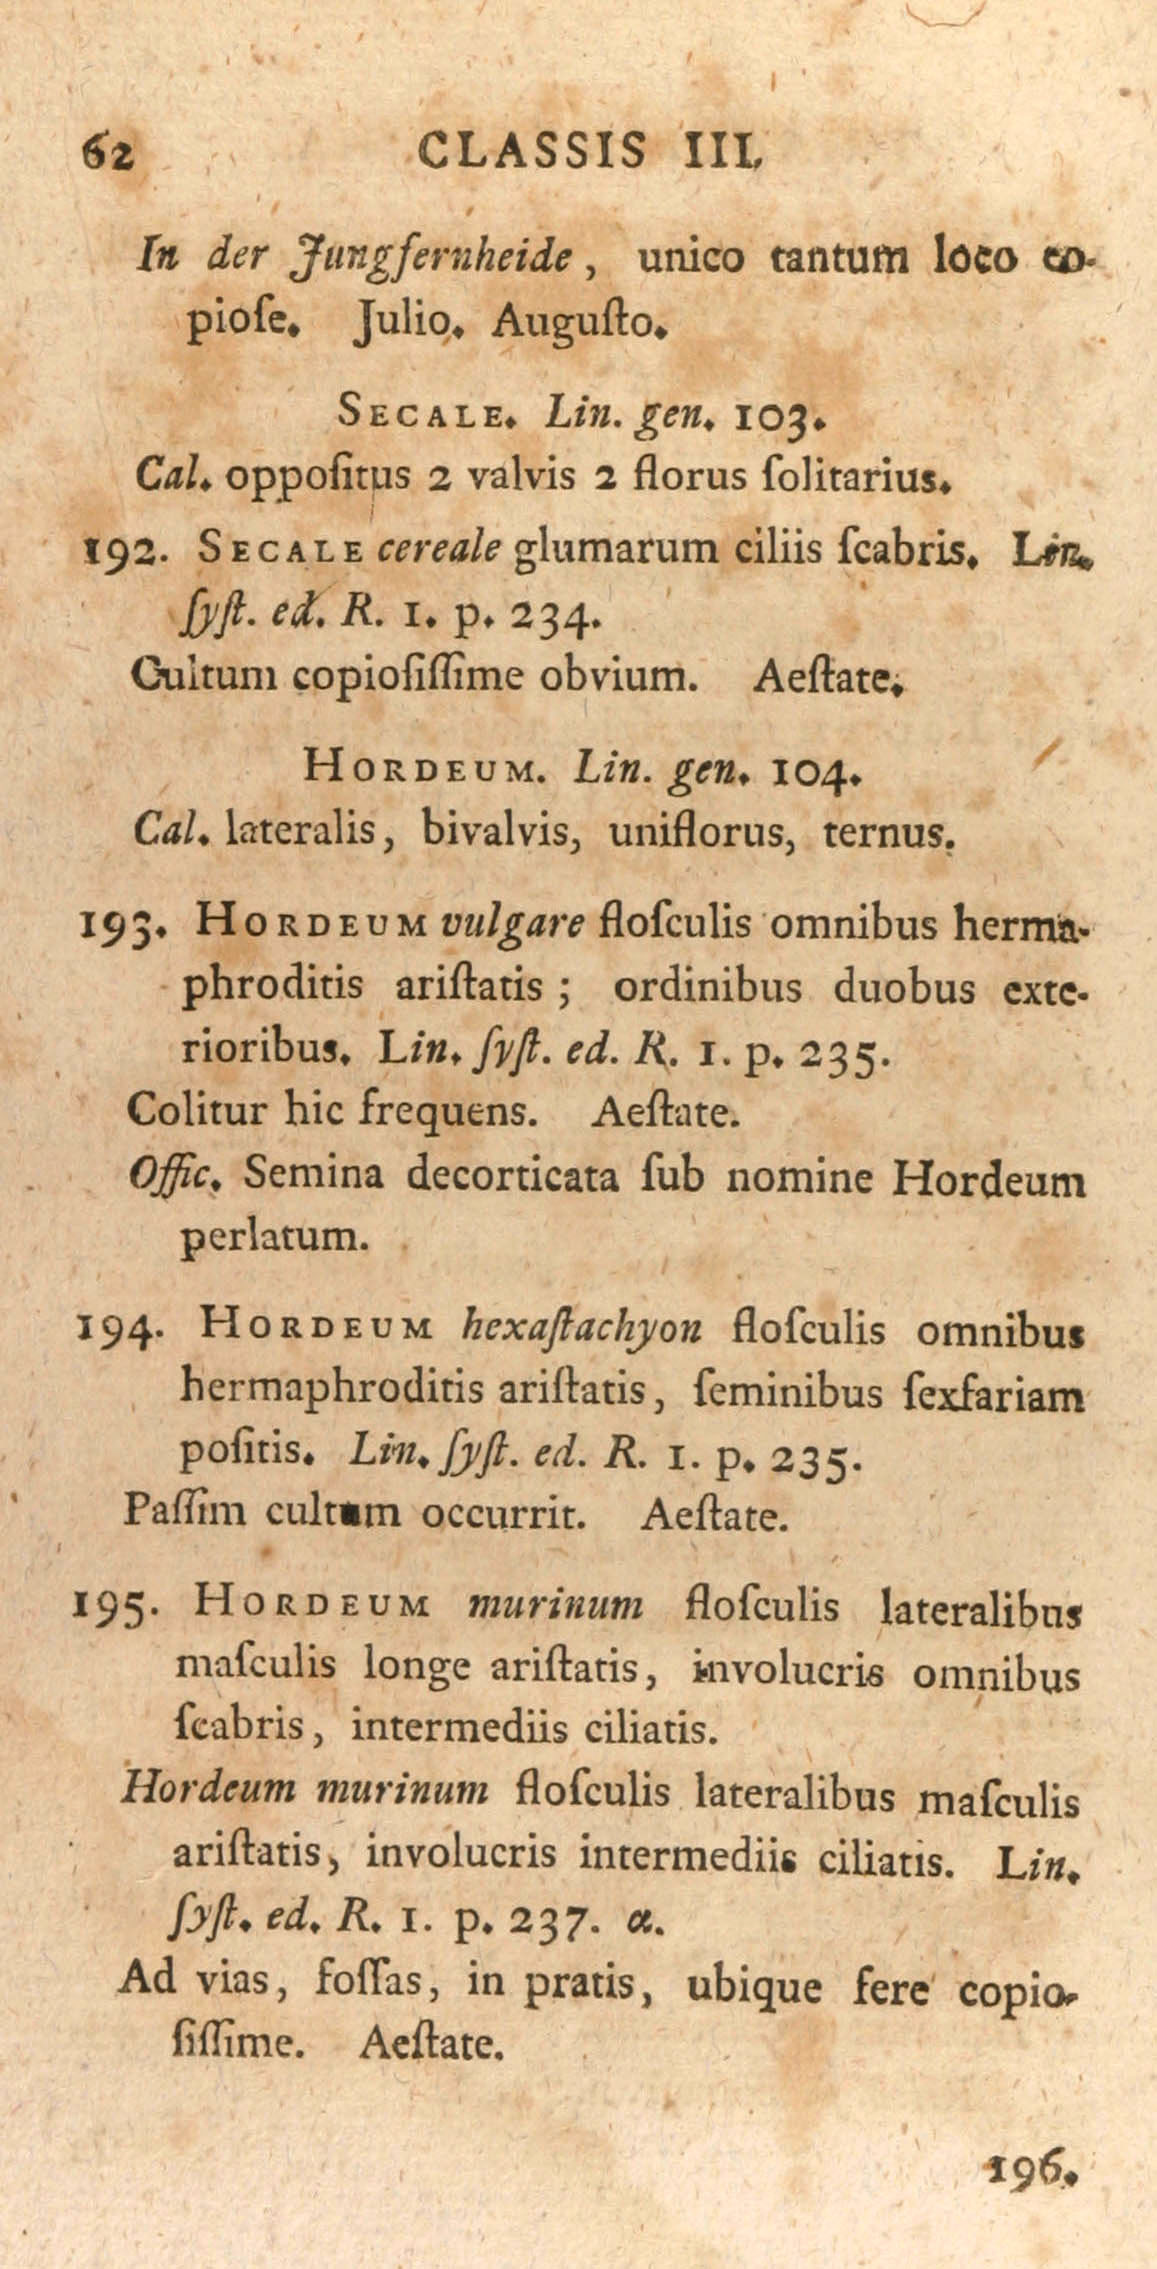 62 CLASSIS III.
In der Jungfernheide, unico tantum loco co-
pioſe. Julio. Auguſto.
SECALE. Lin. gen. 103.
Cal. oppoſitus 2 valvis 2 florus ſolitarius.
192. SECALE cereale glumarum ciliis ſcabris. Lin.
ſyſt. ed. R. 1. p. 234.
Cultum copioſiſſime obvium. Aeſtate.
HORDEUM. Lin. gen. 104.
Cal. lateralis, bivalvis, uniflorus, ternus.
193. HORDEUM vulgare floſculis omnibus herma-
phroditis ariſtatis; ordinibus duobus exte-
rioribus. Lin. ſyſt. ed. R. 1. p. 235.
Colitur hic frequens. Aeſtate.
Offic. Semina decorticata ſub nomine Hordeum
perlatum.
194. HORDEUM hexaſtachyon floſculis omnibus
hermaphroditis ariſtatis, ſeminibus ſexfariam
poſitis. Lin. ſyſt. ed. R. 1. p. 235.
Paſſim cultum occurrit. Aeſtate.
195. HORDEUM murinum floſculis lateralibus
maſculis longe ariſtatis, involucris omnibus
ſcabris, intermediis ciliatis.
Hordeum murinum floſculis lateralibus maſculis
ariſtatis, involucris intermediis ciliatis. Lin.
ſyſt. ed. R. 1. p. 237. α.
Ad vias, foſſas, in pratis, ubique fere copio-
ſiſſime. Aeſtate.
196.